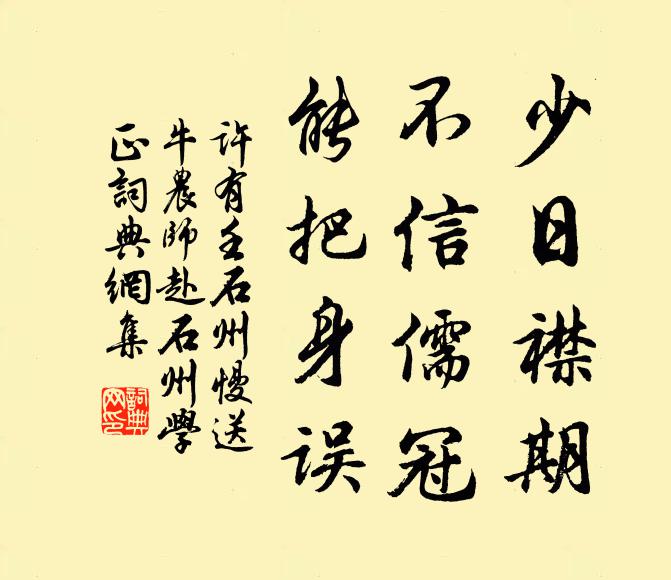 少日襟期
不信儒冠
能把身误
许有壬石州慢送
牛農師赴石州學
正詞典網集
詞典
网印